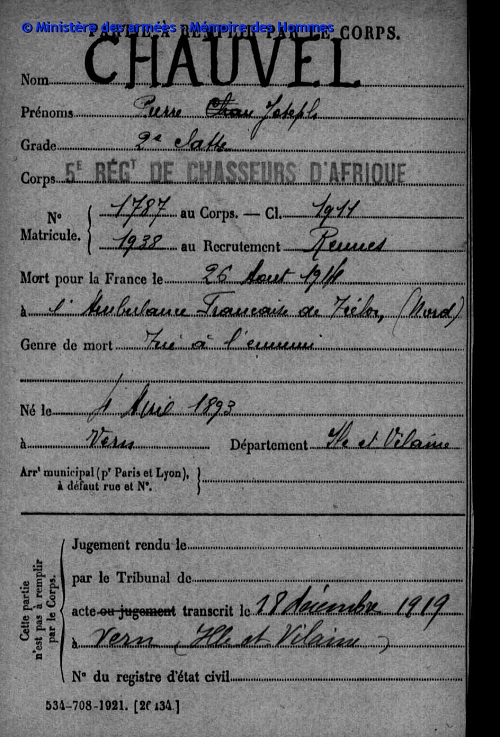 © Ministère des armées - Mémoire des Hommes
PARTIE À REMPLIR PAR LE CORPS.
CHAUVEL
Nom
Prénoms Pierre Joseph
Grade 2e classe
Corps 5E RÉGT DE CHASSEURS D'AFRIQUE
N° Matricule. 1787 au Corps. — Cl. 1911
1938 au Recrutement Rennes
Mort pour la France le 26 Aout 1914
à l'Ambulance Française de Trélon, (Nord)
Genre de mort Tué à l'ennemi
Né le 4 Avril 1893
à Vern Département Ile et Vilaine
Arrt municipal (pr Paris et Lyon),
à défaut rue et N°.
Cette partie n'est pas à remplir par le Corps.
Jugement rendu le
par le Tribunal de
acte ou jugement transcrit le 18 décembre 1919
à Vern (Ille et Vilaine)
N° du registre d'état civil
534-708-1921. [26434.]